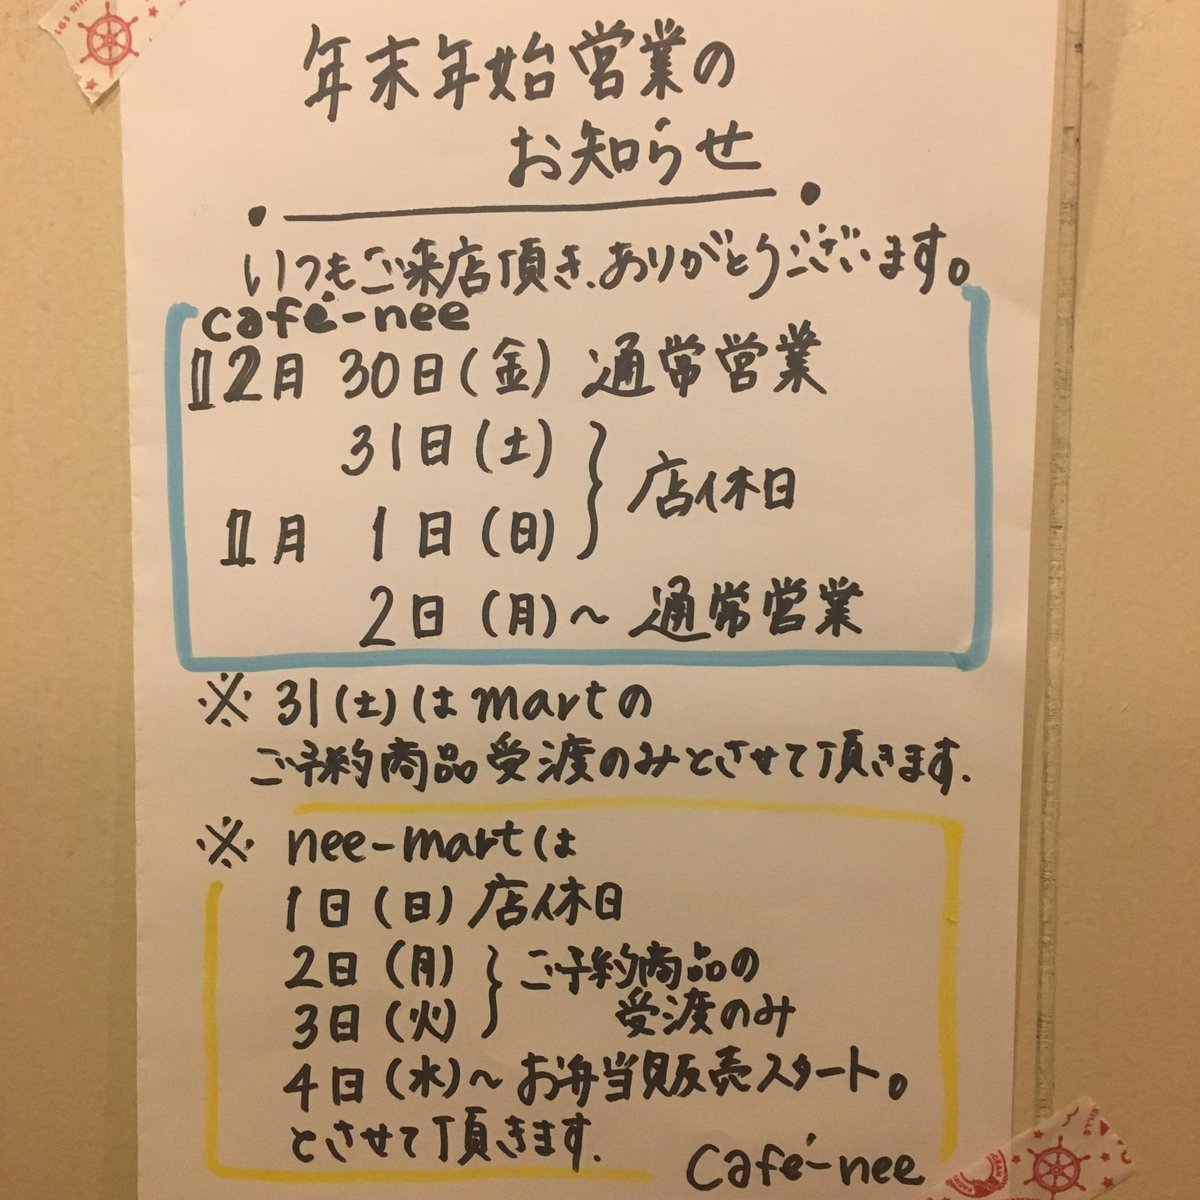 年末年始営業の
お知らせ
いつもご来店頂き、ありがとうございます。
café-nee
12月 30日(金) 通常営業
31日(土)
店休日
1月 1日(日)
2日(月)~ 通常営業
※ 31(土)はmartの
ご予約商品受渡のみとさせて頂きます.
※ nee-martは
1日(日)店休日
2日(月)
ご予約商品の
受渡のみ
3日(火)
4日(水)~お弁当販売スタート。
とさせて頂きます.
Café-nee